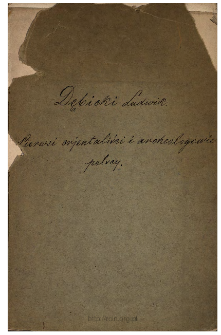 Dębicki Ludwik.
Pierwsi orjentaliści i archeologowie
polscy.